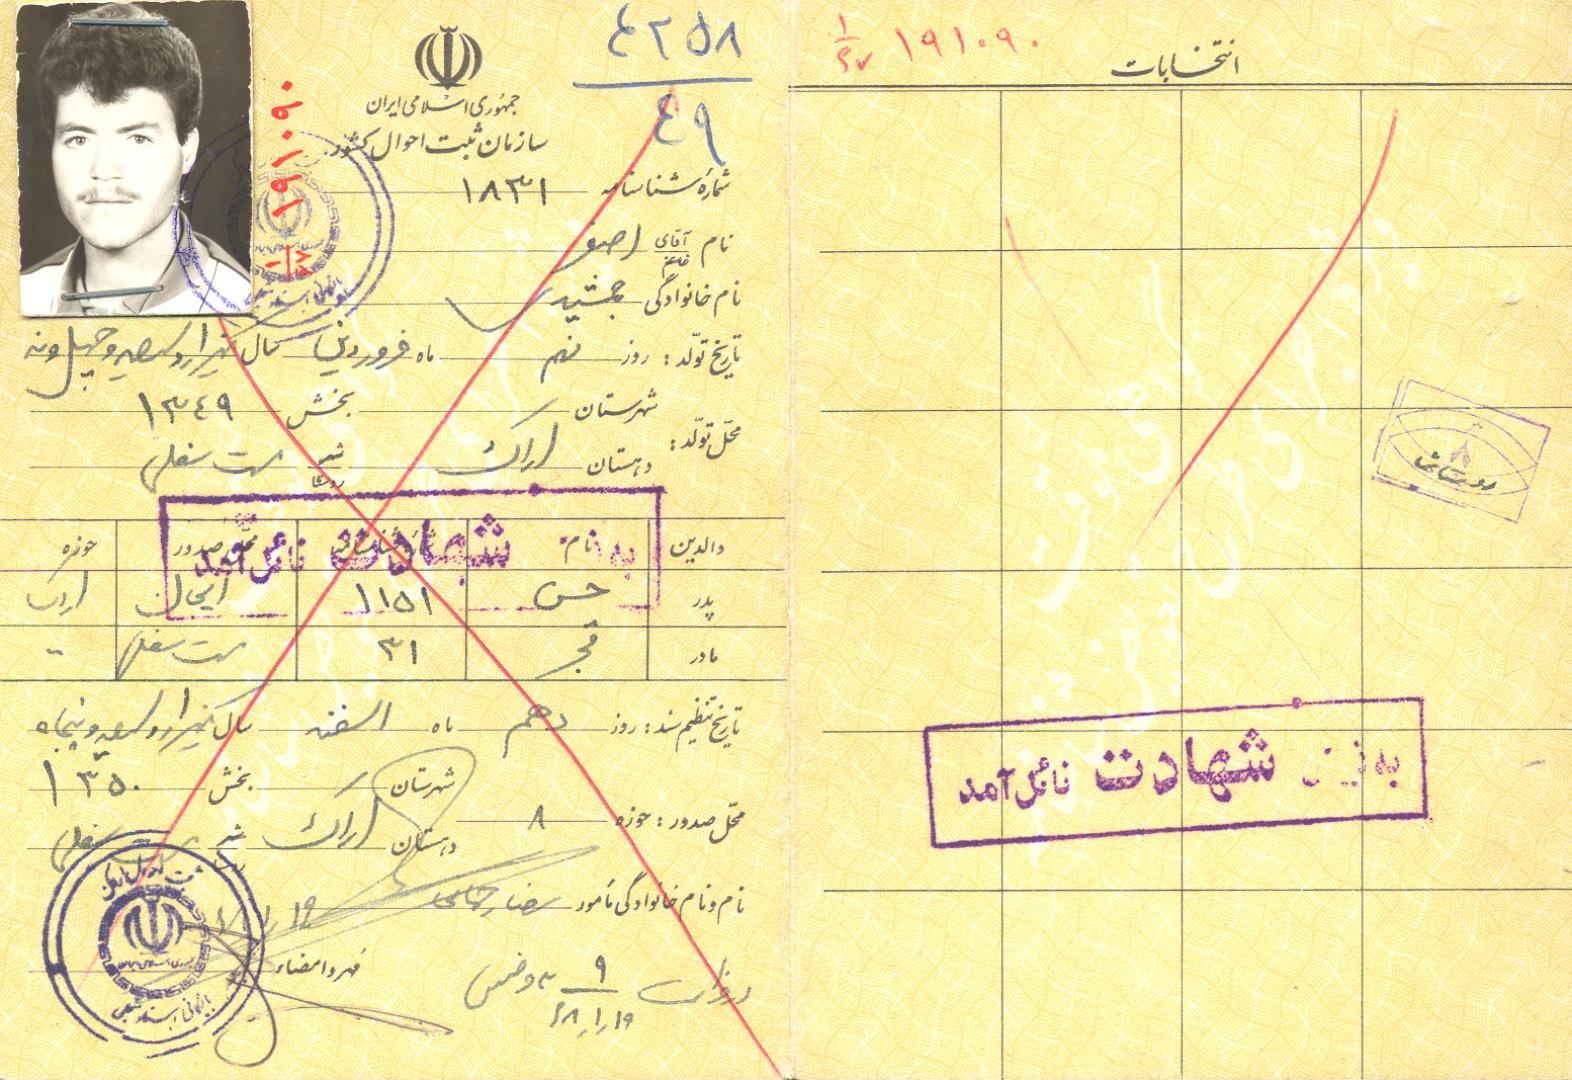 انتخابات
۱۹۱۰۹۰
۴۲۵۸
۴۹
جمهوری اسلامی ایران
سازمان ثبت احوال کشور
شمارهٔ شناسنامه ۱۸۳۱
نام آقای خانم اصغر
نام خانوادگی جمشیدی
تاریخ تولّد: روز نهم ماه فروردین سال یکهزار و سیصد و چهل و نه
۱۳۴۹
محلّ تولّد: شهرستان بخش
دهستان اراک شهر روستا سفلی
والدین نام شماره شناسنامه محلّ صدور حوزه
پدر حسن ۱۱۵۱ اراک
مادر ۳۱ سفلی -
به فیض شهادت نائل آمد
تاریخ تنظیم سند: روز دهم ماه اسفند سال یکهزار و سیصد و پنجاه
۱۳۵۰
محلّ صدور: حوزه ۸ شهرستان بخش
دهستان اراک شهر روستا سفلی
نام و نام خانوادگی مأمور
مُهر و امضاء
۹
۶۸/۱/۱۹
به فیض شهادت نائل آمد
۱۹۱۰۹۰